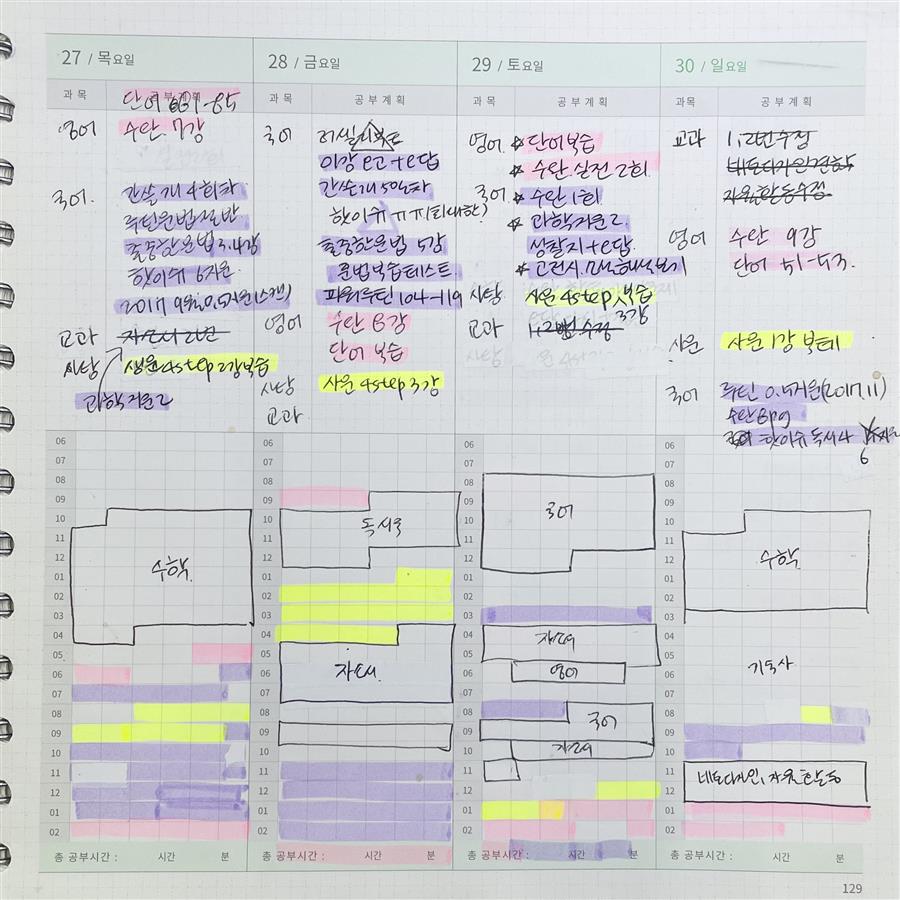 27 / 목요일
과목 공부계획
단어
영어 수완 7강
국어. 간쓸개 4회차
루틴문법절반
출중한문법 3.4강
핫이슈 6지문
교과
사탐 생윤 4step 2강복습
과학지문2
28 / 금요일
과목 공부계획
국어
간쓸개 5일차
핫이슈
출중한문법 5강
문법복습테스트
파워루틴 104-119
영어 수완 8강
단어 복습
사탐 사윤 4step 3강
교과
29 / 토요일
과목 공부계획
영어. ☆ 단어복습
☆ 수완.실전 2회
국어. ☆ 수완 1회
☆ 과학지문 2.
성찰지+e답
사탐 사윤 4step 복습
3강
교과 1,2번 수정
30 / 일요일
과목 공부계획
교과 1,2번수정
자율활동수정
영어 수완 9강
단어 51-53.
사윤 사윤 1강 복테
국어 루틴 0.5지문(2017.11)
수완 8pg
핫이슈 독서4
6
06
07
08
09
10
11
12
01
02
03
04
05
06
07
08
09
10
11
12
01
02
수학
총 공부시간 : 시간 분
06
07
08
09
10
11
12
01
02
03
04
05
06
07
08
09
10
11
12
01
02
독서록
자소서.
총 공부시간 : 시간 분
06
07
08
09
10
11
12
01
02
03
04
05
06
07
08
09
10
11
12
01
02
국어
영어
국어
총 공부시간 : 시간 분
06
07
08
09
10
11
12
01
02
03
04
05
06
07
08
09
10
11
12
01
02
수학
기숙사
네트디자인, 자율활동
총 공부시간 : 시간 분
129